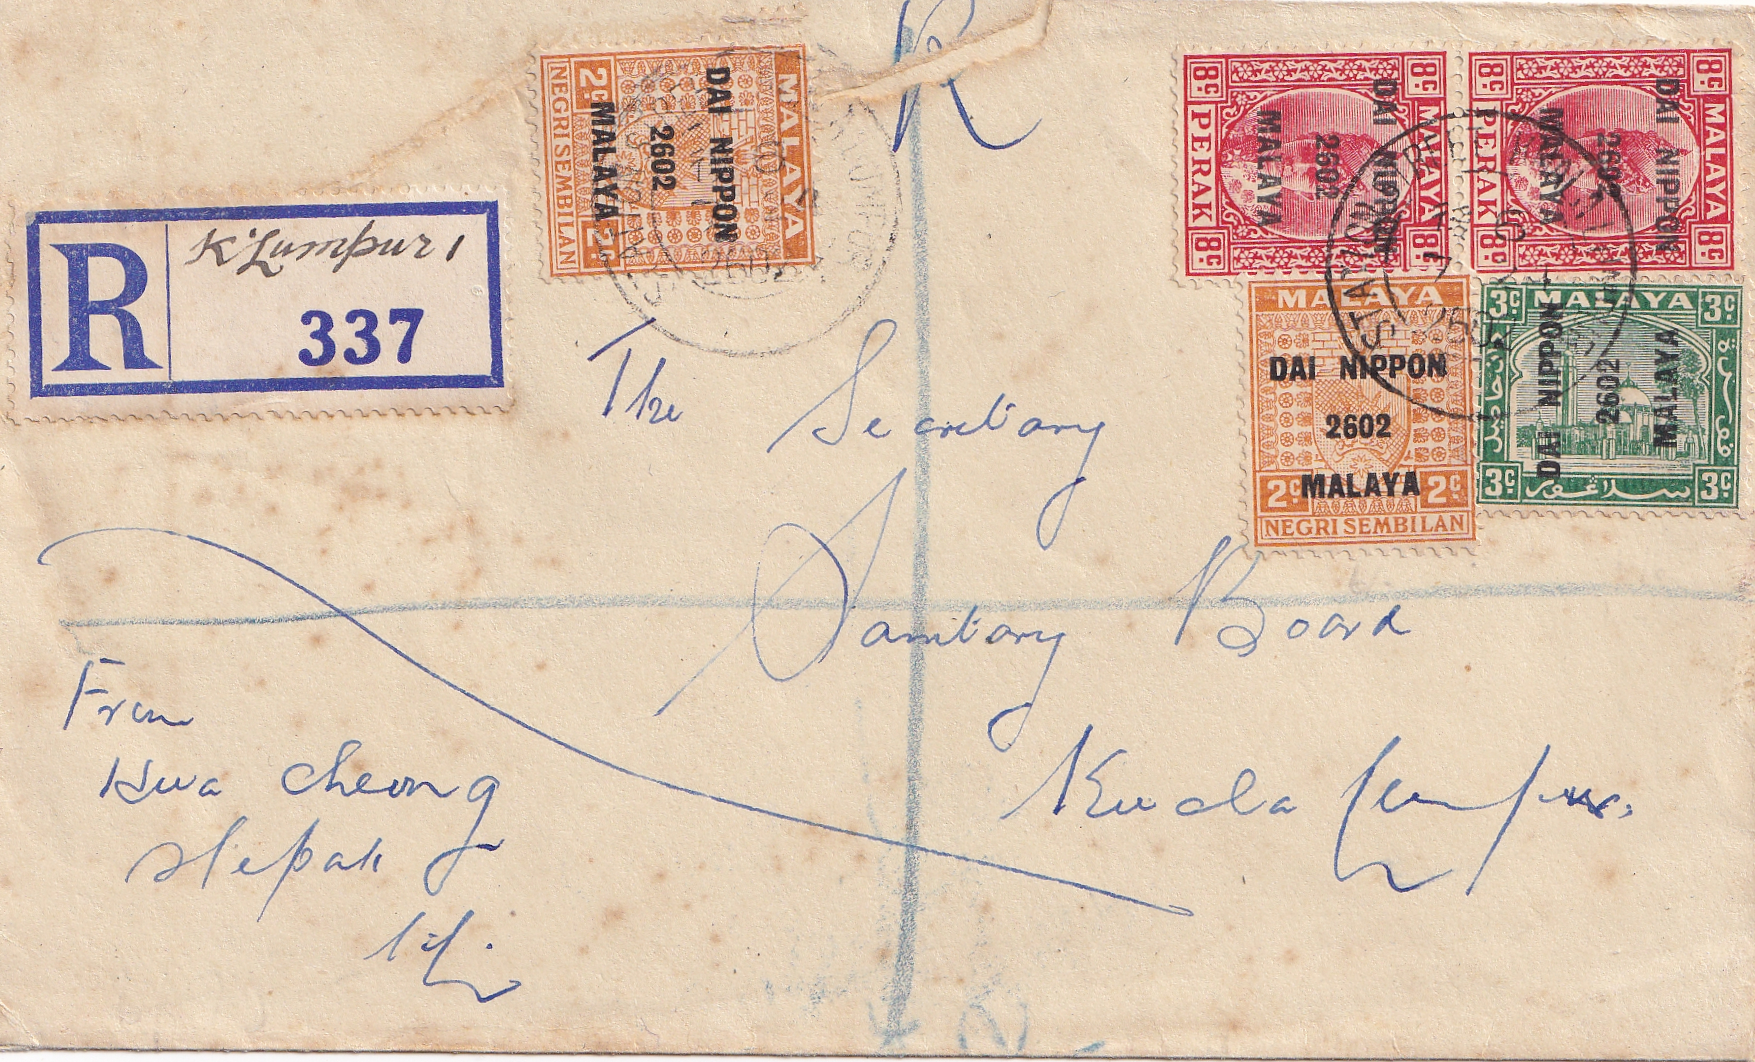 R
K'Lumpur 1
R
337
MALAYA
DAI NIPPON
2602
MALAYA
2c 2c
NEGRI SEMBILAN
8c MALAYA 8c
DAI NIPPON
2602
MALAYA
8c PERAK 8c
8c MALAYA 8c
DAI NIPPON
2602
MALAYA
8c PERAK 8c
MALAYA
DAI NIPPON
2602
MALAYA
2c 2c
NEGRI SEMBILAN
3c MALAYA 3c
DAI NIPPON
2602
MALAYA
3c 3c
2602
2602
The Secretary
Sanitary Board
Kuala Lumpur.
From
Hwa Cheong